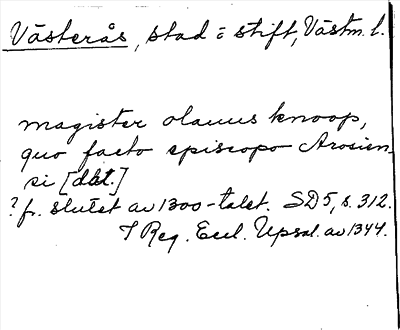 Västerås, stad o stift, Västm. l.
magister olauus knoop,
quo facto episcopo Arosien
si [dat.]
? fr. slutet av 1300-talet. SD 5, s. 312.
I Reg. Eccl. Upsal. av 1344.